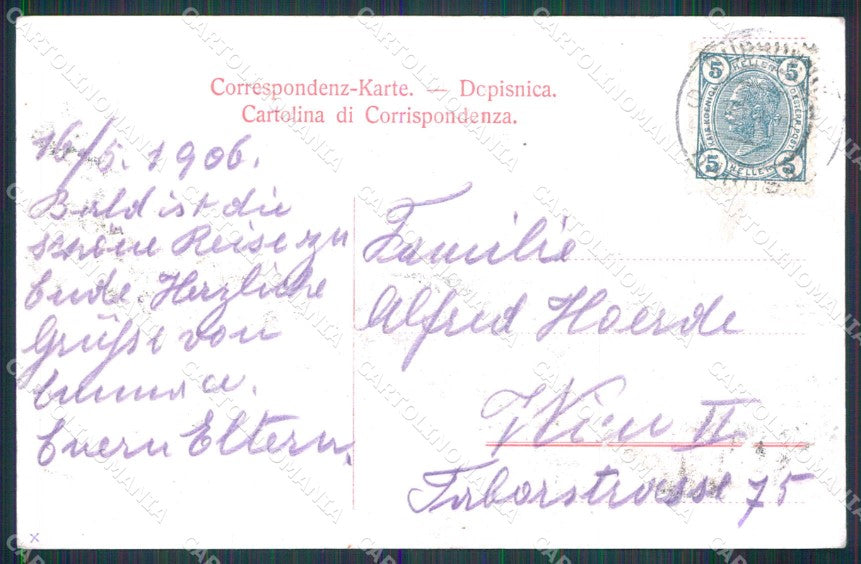 Correspondenz-Karte. — Dopisnica.
Cartolina di Corrispondenza.
5 HELLER 5
KAIS. KOENIGL. OESTERR. POST
5 HELLER 5
16/5. 1906.
Bald ist die
schöne Reise zu
Ende. Herzliche
Grüsse von
Emma u.
Euern Eltern.
Familie
Alfred Hoerde
Wien II.
Taborstrasse 75
x
CARTOLINOMANIA